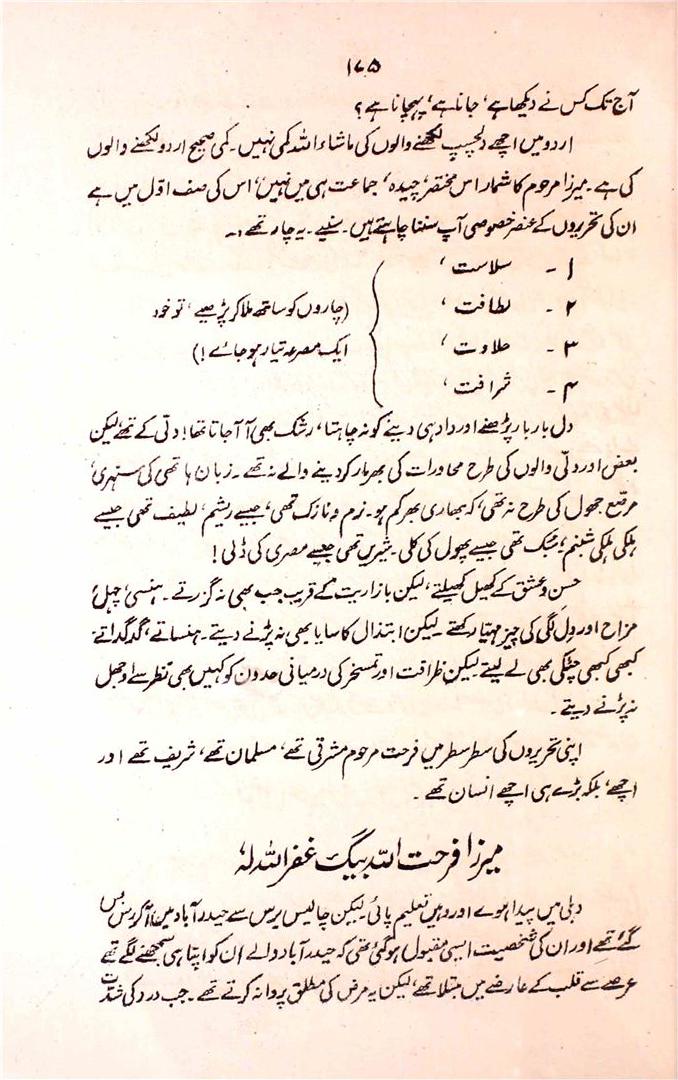 ۱۷۵
آج تک کس نے دیکھا ہے، جانا ہے، پہچانا ہے؟
اردو میں اچھے دلچسپ لکھنے والوں کی ماشاء اللہ کمی نہیں۔ کمی صحیح اردو لکھنے والوں
کی ہے۔ میرزا مرحوم کا شمار اس مختصر، چیدہ، جماعت ہی میں نہیں، اس کی صف اوّل میں ہے
ان کی تحریروں کے عنصر خصوصی آپ سننا چاہتے ہیں۔ سنیے۔ یہ چار تھے :۔
۱ - سلاست،
۲ - لطافت،
۳ - حلاوت،
۴ - شرافت،
(چاروں کو ساتھ ملا کر پڑھیے، تو خود
ایک مصرعہ تیار ہو جائے!)
دل بار بار پڑھنے اور داد ہی دینے کو نہ چاہتا، رشک بھی آ آ جاتا تھا! دلّی کے تھے، لیکن
بعض اور دلّی والوں کی طرح محاورات کی بھرمار کر دینے والے نہ تھے۔ زبان ہاتھی کی سنہری،
مرصّع جھول کی طرح نہ تھی، کہ بھاری بھرکم ہو۔ نرم و نازک تھی، جیسے ریشم، لطیف تھی جیسے
ہلکی ہلکی شبنم، سُبک تھی جیسے پھول کی کلی۔ شیریں تھی جیسے مصری کی ڈلی!
حسن و عشق کے کھیل کھیلتے، لیکن بازاریت کے قریب جب بھی نہ گزرتے۔ ہنسی، چہل،
مزاح اور دل لگی کی چیز مہیّا رکھتے۔ لیکن ابتذال کا سایا بھی نہ پڑنے دیتے۔ ہنساتے، گدگداتے
کبھی کبھی چٹکی بھی لے لیتے لیکن ظرافت اور تمسخر کی درمیانی حدوں کو کہیں بھی نظر سے اوجھل
نہ پڑنے دیتے۔
اپنی تحریروں کی سطر سطر میں فرحت مرحوم مشرقی تھے، مسلمان تھے، شریف تھے اور
اچھے، بلکہ بڑے ہی اچھے انسان تھے۔
میرزا فرحت اللہ بیگ غفر اللہ لہٗ
دہلی میں پیدا ہوے اور وہیں تعلیم پائی۔ لیکن چالیس برس سے حیدرآباد میں آ کر رس بس
گئے تھے اور ان کی شخصیت ایسی مقبول ہو گئی تھی کہ حیدرآباد والے ان کو اپنا ہی سمجھنے لگے تھے
عرصے سے قلب کے عارضے میں مبتلا تھے، لیکن یہ مرض کی مطلق پروا نہ کرتے تھے۔ جب درد کی شدّت